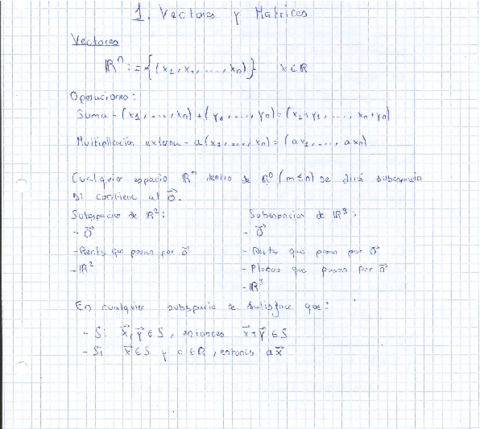 1. Vectores y Matrices
Vectores
ℝⁿ := {(x₁, x₂, ..., xₙ)} x ∈ ℝ
Operaciones:
Suma - (x₁, ..., xₙ) + (y₁, ..., yₙ) = (x₁+y₁, ..., xₙ+yₙ)
Multiplicación externa - a(x₁, ..., xₙ) = (ax₁, ..., axₙ)
Cualquier espacio dentro de (m ≤ n) se dirá subespacio
si contiene al 0⃗.
Subespacio de ℝ²:
- 0⃗
- Recta que pasan por 0⃗
- ℝ²
Subespacios de ℝ³:
- 0⃗
- Recta que pasan por 0⃗
- Planos que pasan por 0⃗
- ℝ³
En cualquier subespacio se satisface que:
- Si x⃗, y⃗ ∈ S, entonces x⃗+y⃗ ∈ S
- Si x⃗ ∈ S y a ∈ ℝ, entonces ax⃗